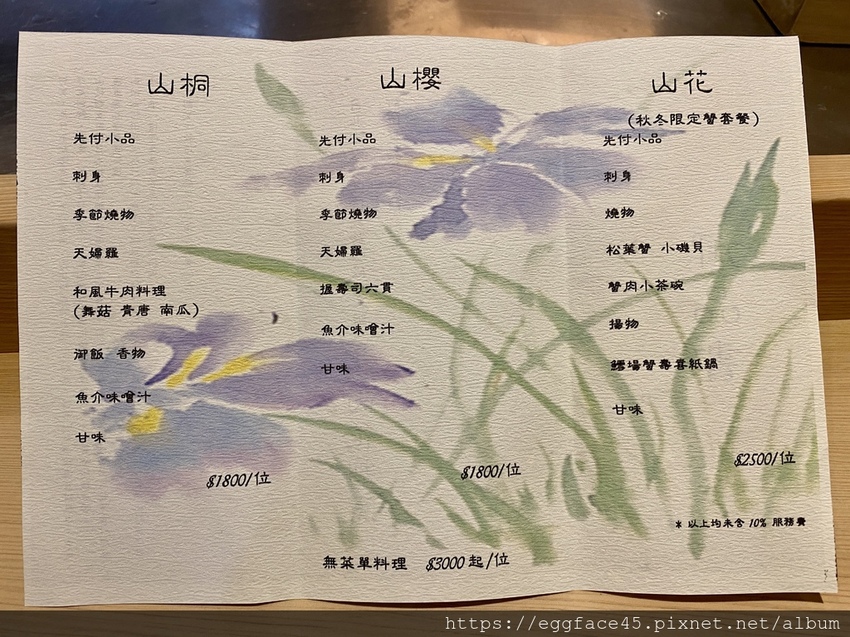 山桐
先付小品
刺身
季節燒物
天婦羅
和風牛肉料理
(舞菇 青唐 南瓜)
御飯 香物
魚介味噌汁
甘味
$1800/位
山櫻
先付小品
刺身
季節燒物
天婦羅
握壽司六貫
魚介味噌汁
甘味
$1800/位
山花
(秋冬限定蟹套餐)
先付小品
刺身
燒物
松葉蟹 小磯貝
蟹肉小茶碗
揚物
鱈場蟹壽喜紙鍋
甘味
$2500/位
* 以上均未含 10% 服務費
無菜單料理 $3000 起/位
https://eggface45.pixnet.net/album